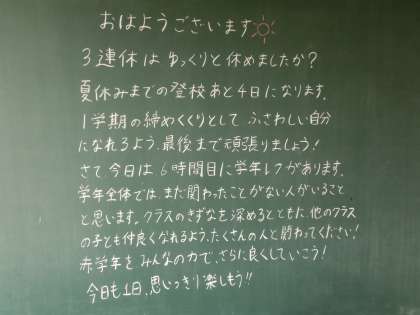 おはようございます
3連休はゆっくりと休めましたか?
夏休みまでの登校あと4日になります。
1学期の締めくくりとして ふさわしい自分
になれるよう、最後まで頑張りましょう!
さて、今日は 6時間目に学年レクがあります。
学年全体では、まだ関わったことがない人がいること
と思います。クラスのきずなを深めるとともに、他のクラス
の子とも仲良くなれるよう、たくさんの人と関わってください!
赤学年を みんなの力で、さらに良くしていこう!
今日も1日、思いっきり楽しもう!!